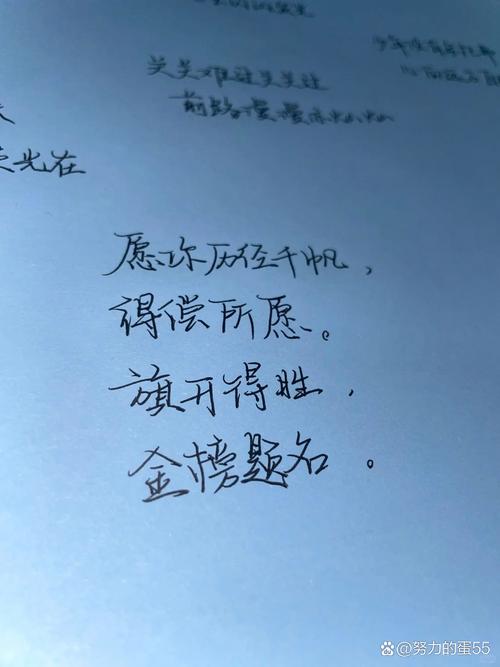 关关难过关关过
前路漫漫亦灿灿
光在
愿你历径千帆，
得偿所愿。
旗开得胜，
金榜题名。
努力的蛋55